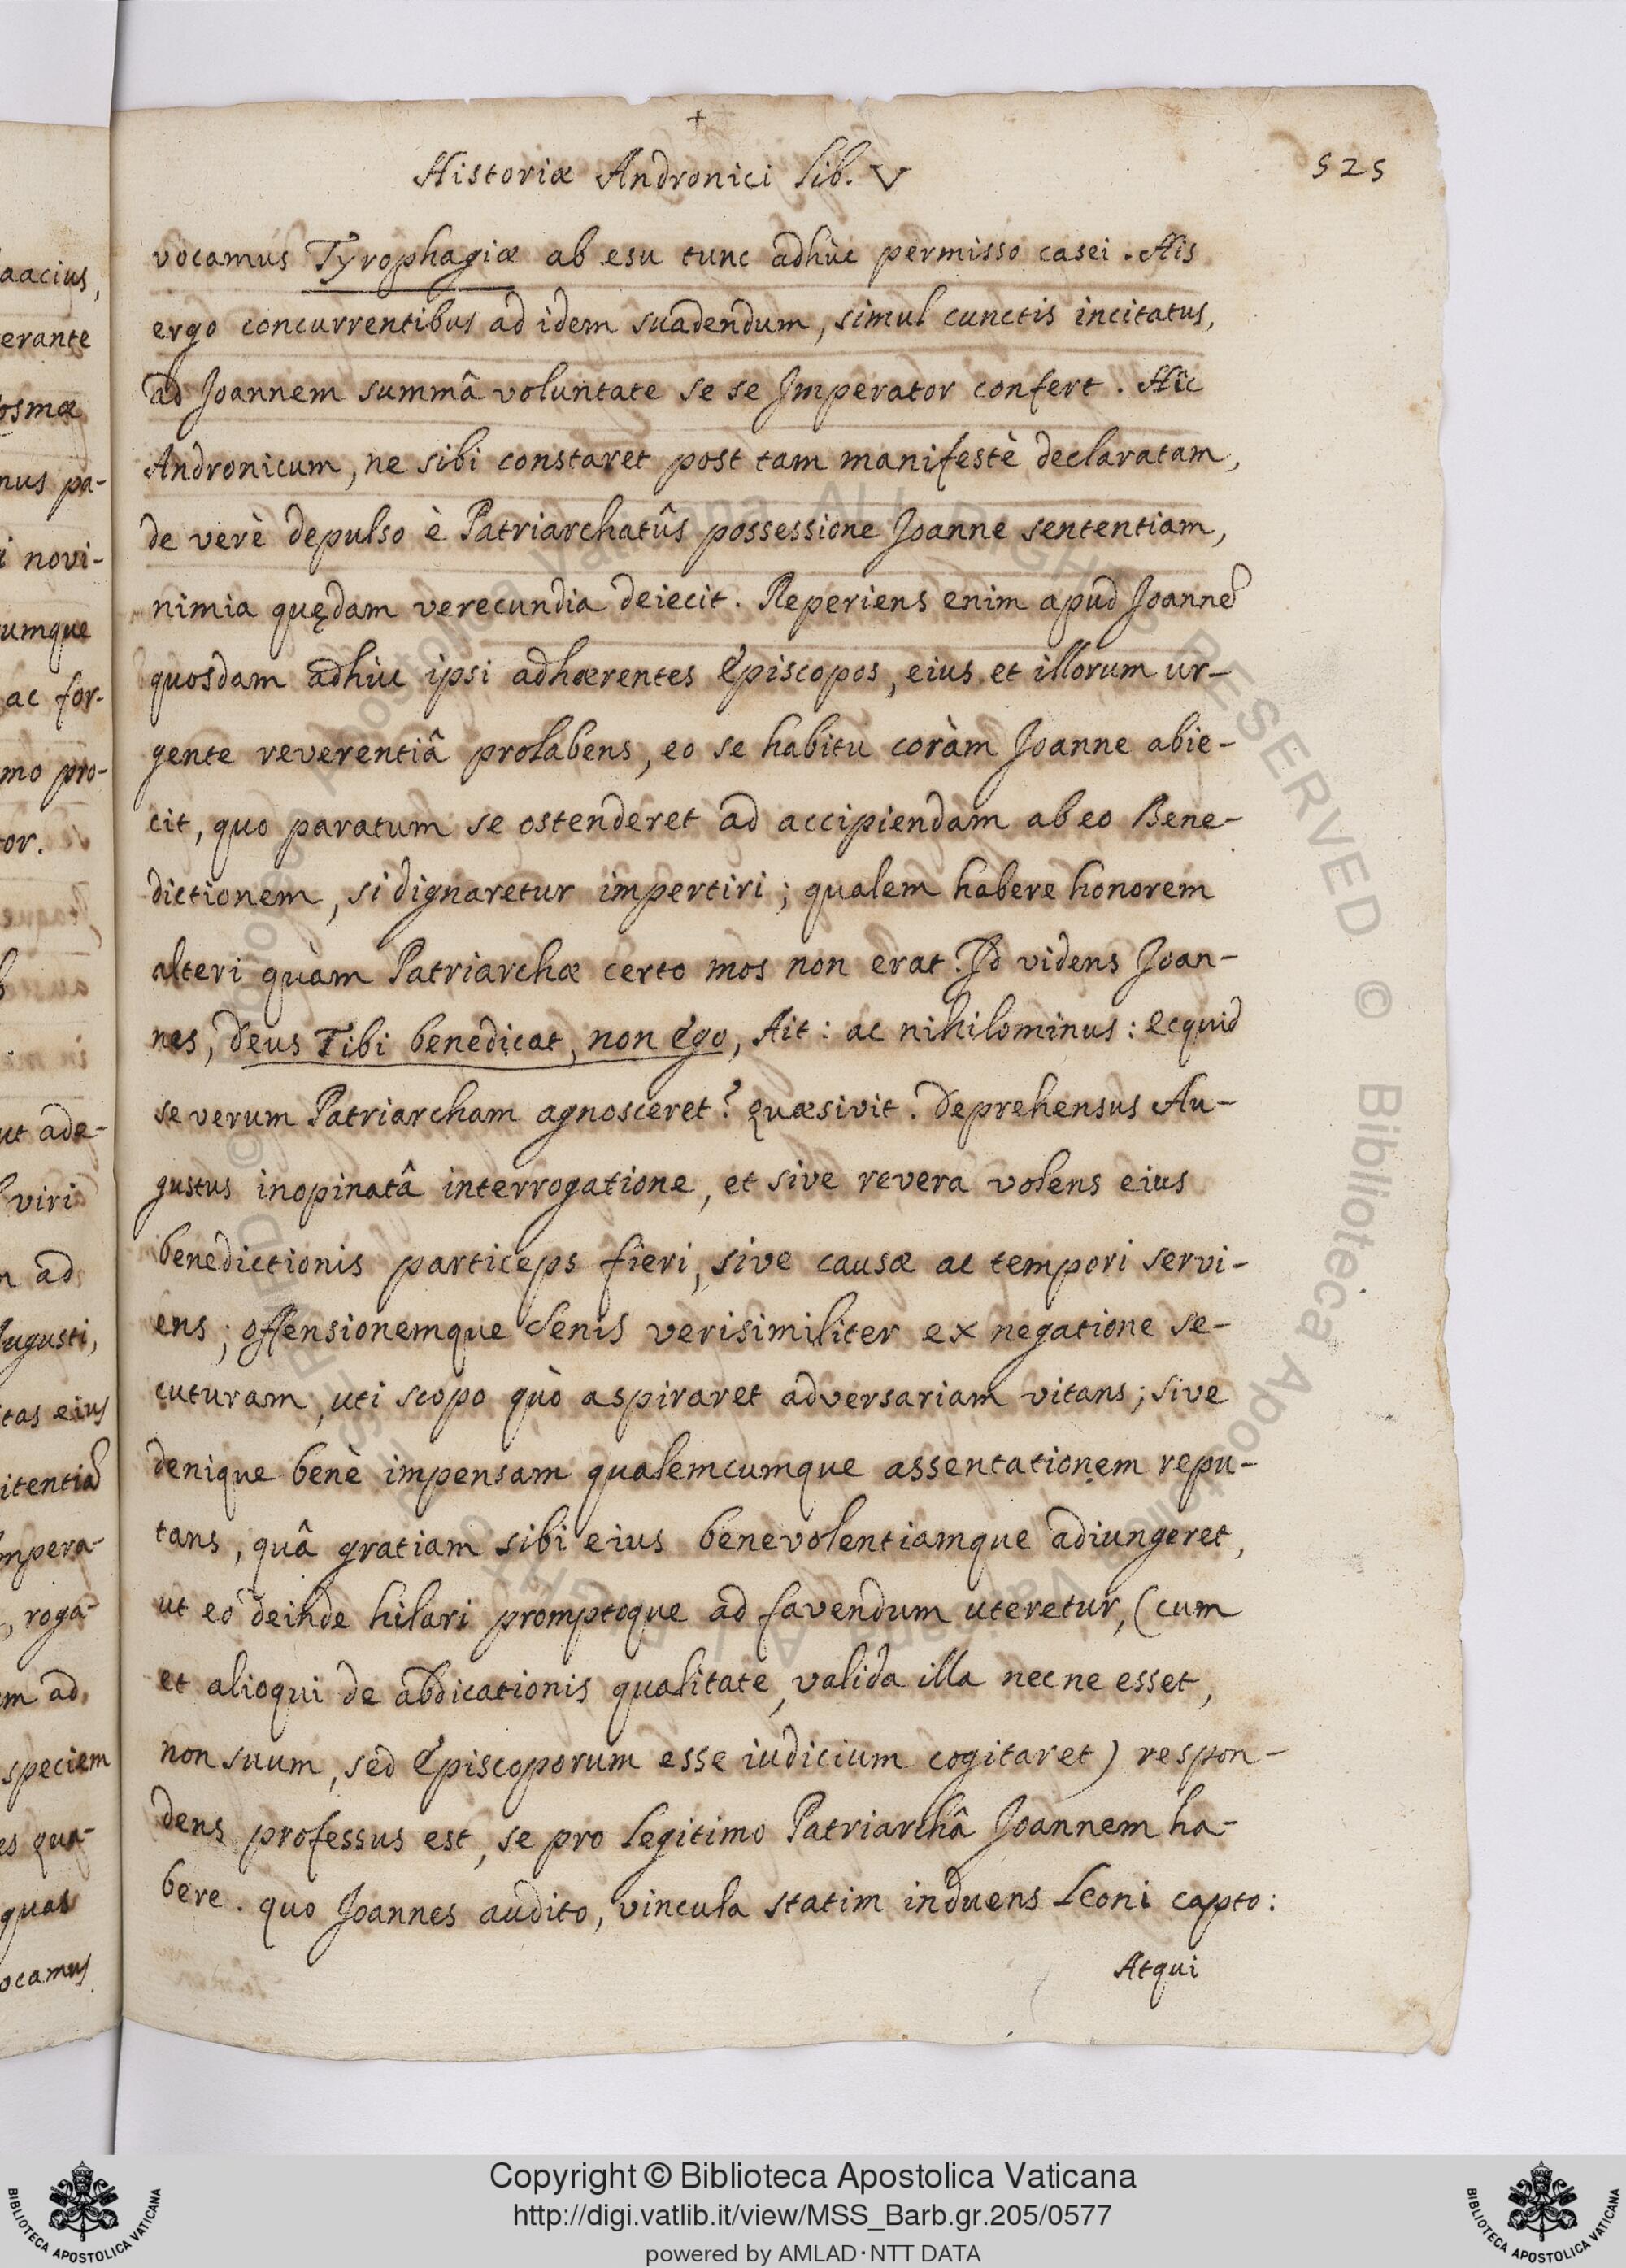 +
Historiæ Andronici Lib. V
525
vocamus Tyrophagiæ ab esu tunc adhùc permisso casei. His
ergo concurrentibus ad idem suadendum, simul cunctis incitatus,
ad Joannem summâ voluntate se se Imperator confert. Hîc
Andronicum, ne sibi constaret post tam manifestè declaratam,
de verè depulso è Patriarchatûs possessione Joanne sententiam,
nimia quędam verecundia deiecit. Reperiens enim apud Joanne͂
quosdam adhùc ipsi adhærentes Episcopos, eius et illorum ur-
gente reverentiâ prolabens, eo se habitu coràm Joanne abie-
cit, quo paratum se ostenderet ad accipiendam ab eo Bene-
dictionem, si dignaretur impertiri; qualem habere honorem
alteri quàm Patriarchæ certo mos non erat. Id videns Joan-
nes, Deus Tibi benedicat, non Ego, Ait: ac nihilominus: Ecquid
se verum Patriarcham agnosceret? quæsivit. Deprehensus Au-
gustus inopinatâ interrogatione, et sive revera volens eius
benedictionis particeps fieri, sive causæ ac tempori servi-
ens; offensionemque Senis verisimiliter ex negatione se-
cuturam, uti scopo quò aspiraret adversariam vitans; sive
denique benè impensam qualemcumque assentationem repu-
tans, quâ gratiam sibi eius benevolentiamque adiungeret,
ut eo deinde hilari promptoque ad favendum uteretur, (cum
et alioqui de abdicationis qualitate, valida illa necne esset,
non suum, sed Episcoporum esse iudicium cogitaret) respon-
dens professus est, se pro legitimo Patriarchâ Joannem ha-
bere. quo Joannes audito, vincula statim induens Leoni capto:
Atqui
aacius,
erante
osmæ
nus pa-
i novi-
umque
ac for-
mo pro-
or.
ut ade-
viri
ad
Augusti,
tas eius
itentia͂
mpera-
, roga-
m ad
speciem
es qua-
quas
ocamus
Copyright © Biblioteca Apostolica Vaticana
http://digi.vatlib.it/view/MSS_Barb.gr.205/0577
powered by AMLAD·NTT DATA
BIBLIOTECA APOSTOLICA VATICANA
BIBLIOTECA APOSTOLICA VATICANA